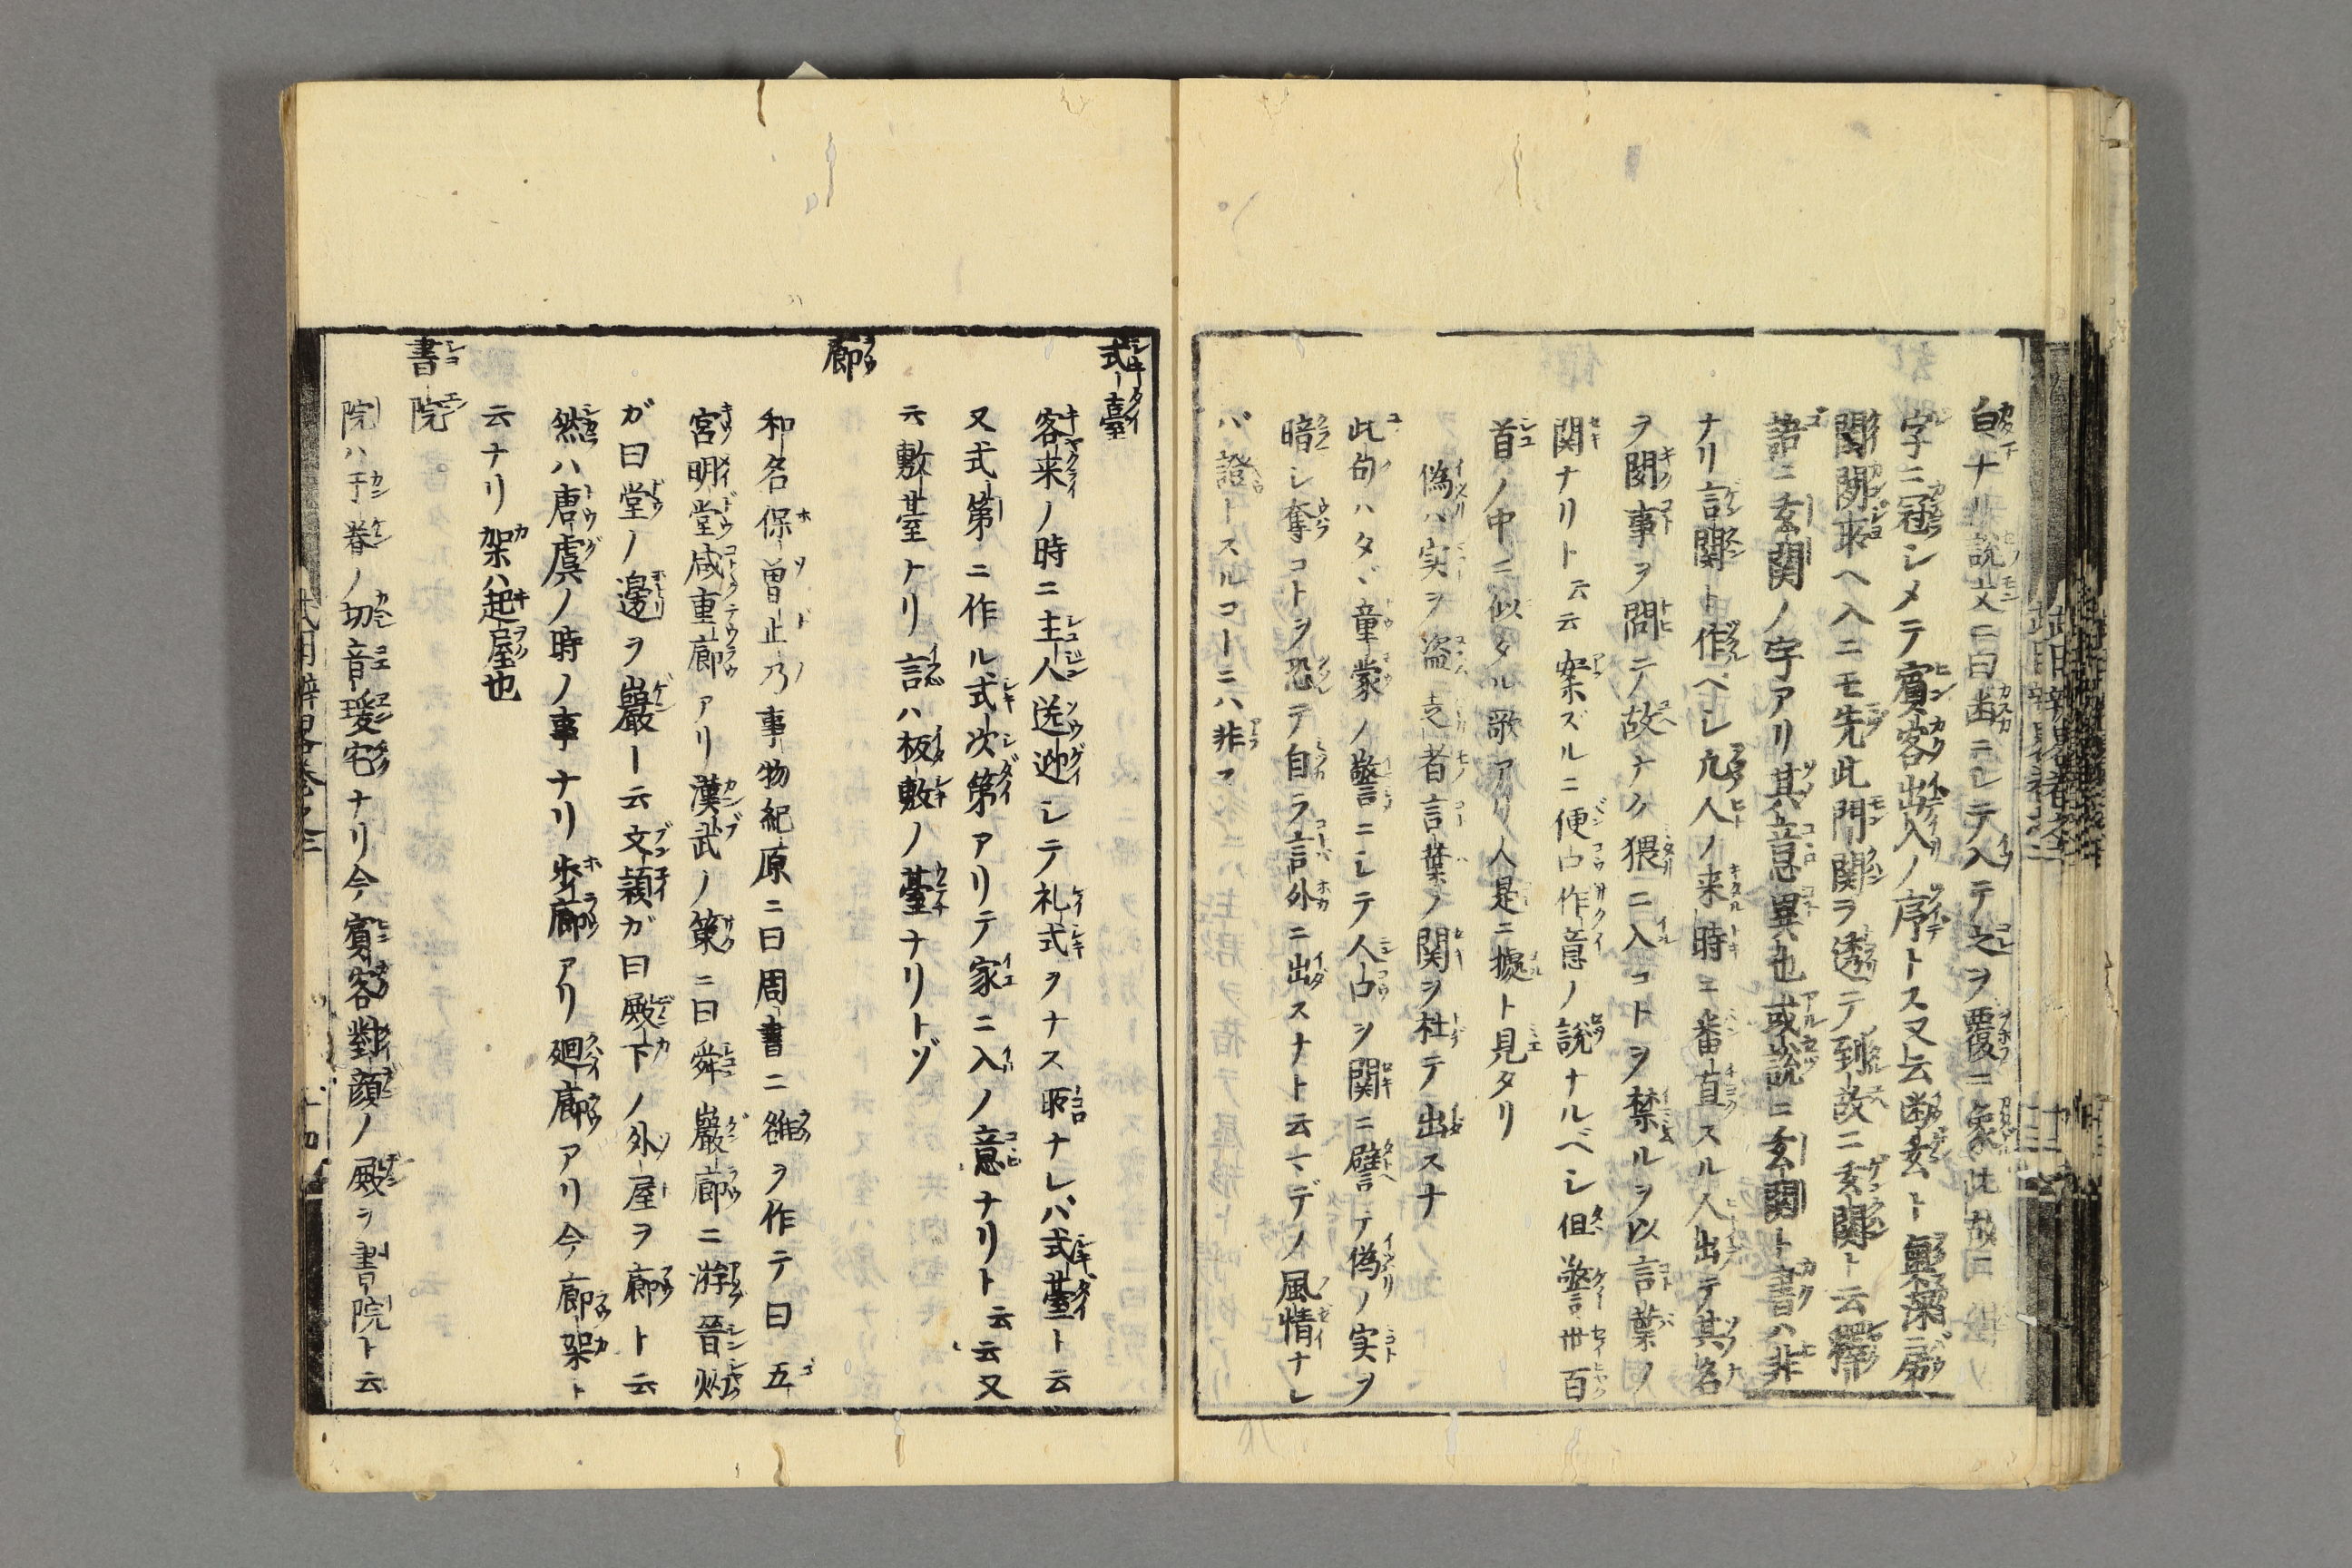 白ナリ説文ニ曰幽ニシテ入テ之ヲ覆ニ象此故ニ
字ニ冠シメテ賓客出入ノ序トス又云幽玄ト奥深ニ
関閉来ヘ入ニモ先此門関ヲ透テ到故ニ玄関ト云釋
語ニ玄関ノ字アリ其意異也或説ニ玄関ト書ハ非
ナリ言関ト作ベシ凢人ノ来時ニ番直スル人出テ其名
ヲ聞事ヲ問テ故ナク猥ニ入コトヲ禁ルヲ以言葉ノ
関ナリト云云案ズルニ便口作意ノ説ナルベシ但警世百
首ノ中ニ似タル歌アリ人是ニ據ト見タリ
偽ハ実ヲ盗之者言葉ノ関ヲ杜テ出スナ
此句ハタヾ童蒙ノ警ニシテ人口ヲ関ニ譬テ偽ノ実ヲ
暗シ奪コトヲ恐テ自ラ言外ニ出スナト云マデノ風情ナレ
バ證ースルコーニハ非ズ
式臺
客来ノ時ニ主人送迎シテ礼式ヲナス所ナレバ式臺ト云
又式第ニ作ル式次第アリテ家ニ入ノ意ナリト云云又
云敷臺トリ言ハ板敷ノ臺ナリトゾ
廊
和名保曽止乃事物紀原ニ曰周書ニ雒ヲ作テ曰五
宮明堂咸重廊アリ漢武ノ策ニ曰舜巖廊ニ游晋灼
ガ曰堂ノ邊ヲ巖ー云文頴ガ曰殿下ノ外屋ヲ廊ト云
然ハ唐虞ノ時ノ事ナリ歩廊アリ廻廊アリ今廊架ト
云ナリ架ハ起屋也
書院
院ハ于眷ノ切音瑗宅ナリ今賓客對顔ノ殿ヲ書院ト云